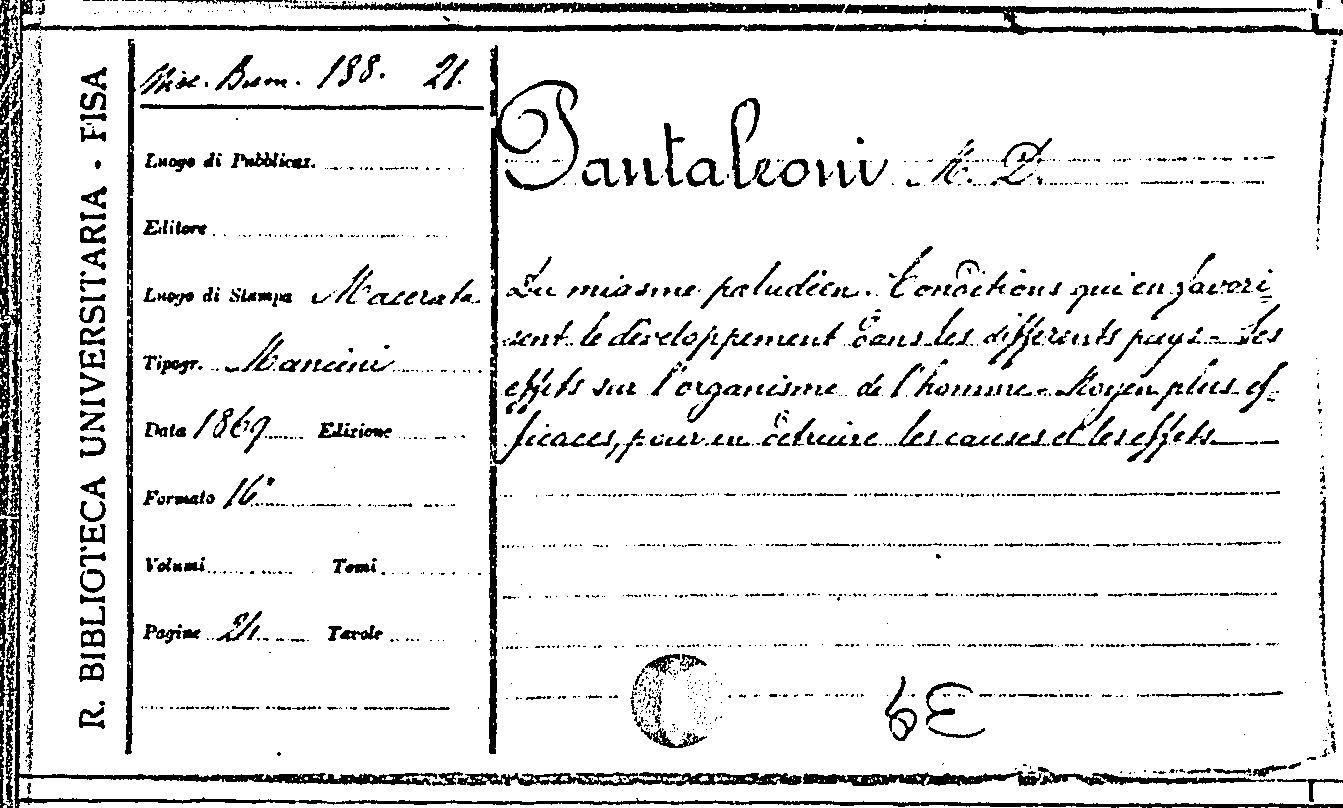 R. BIBLIOTECA UNIVERSITARIA - PISA
Misc. Bum. 188. 21.
Luogo di Pubblicaz.
Editore
Luogo di Stampa Macerata
Tipogr. Mancini
Data 1869 Edizione
Formato 16°
Volumi Tomi
Pagine 24 Tavole
Pantaleoni M. D.
Du miasme paludéen. Conditions qui en favori=
sent le développement dans les differents pays - Ses
effets sur l'organisme de l'homme - Moyen plus ef-
ficaces, pour en détruire les causes et les effets.